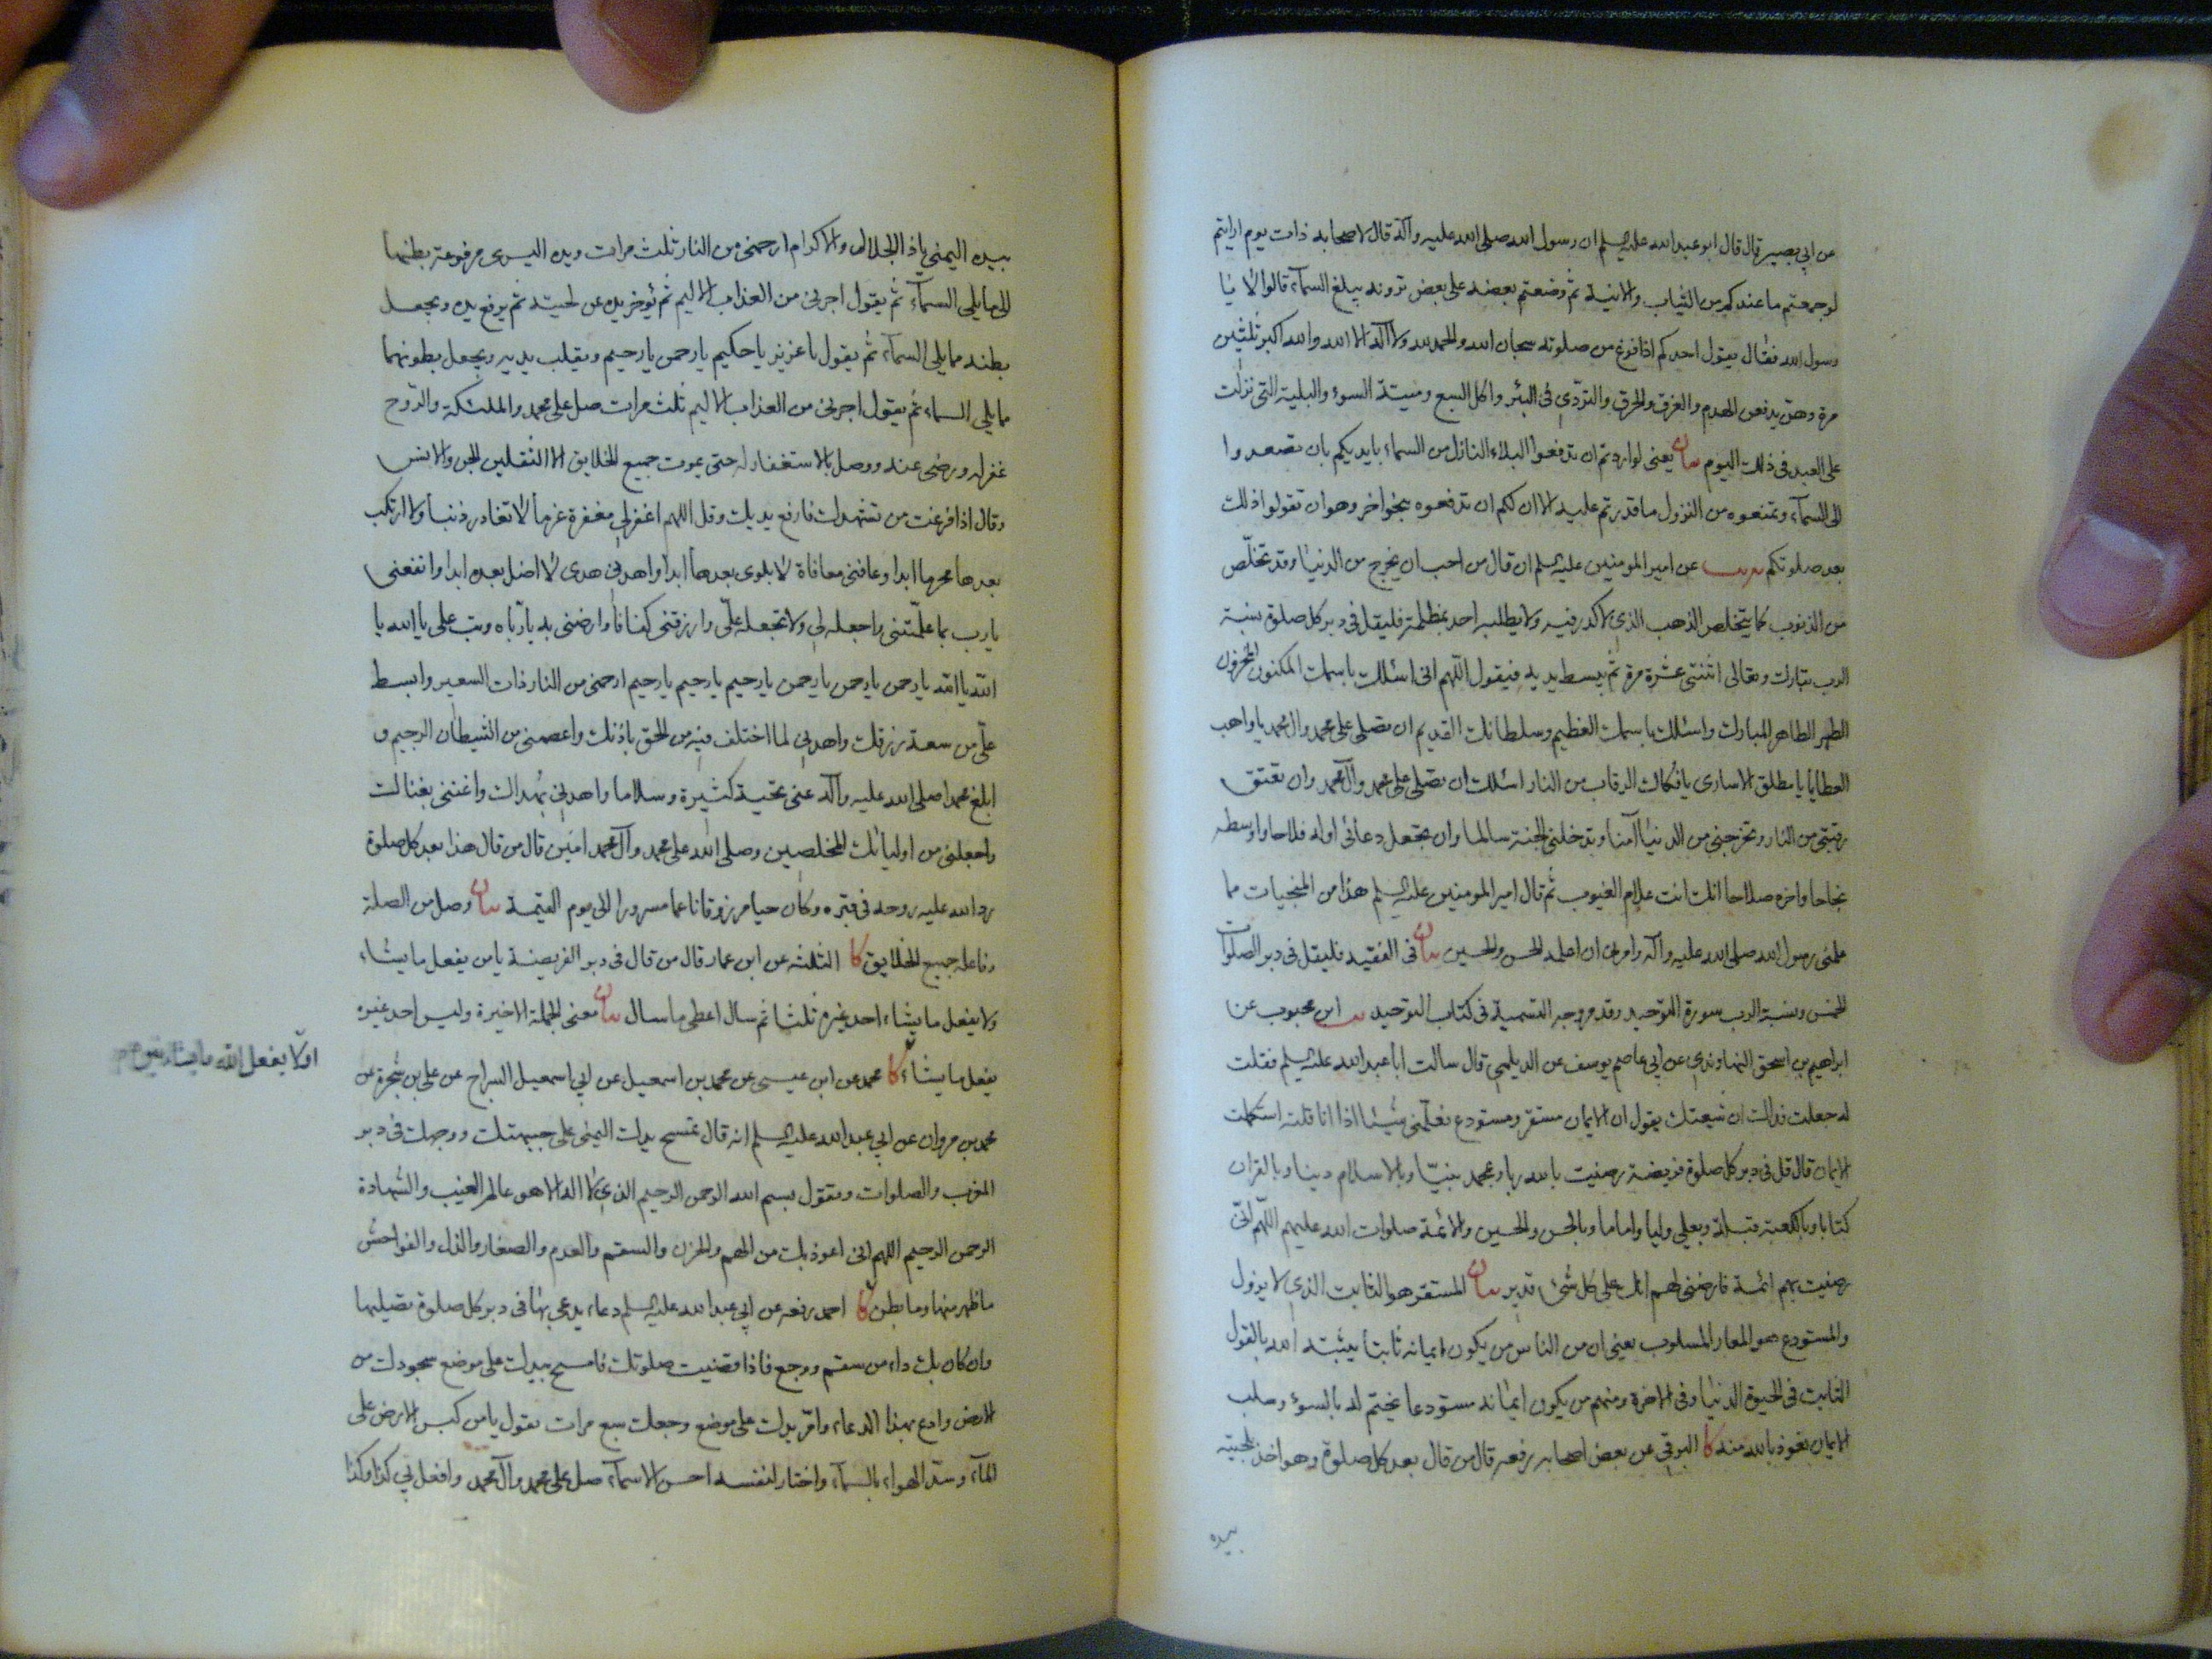 عن ابي بصير قال قال ابو عبد الله عليه السلم ان رسول الله صلى الله عليه وآله قال لاصحابه ذات يوم ارايتم
لو جمعتم ما عندكم من الثياب والانية ثم وضعتم بعضه على بعض ترونه يبلغ السمآء قالوا لا يا
رسول الله فقال يقول احدكم اذا فرغ من صلوته سبحان الله والحمد لله ولا آله الا الله والله اكبر ثلثين
مرة وهن يدفعن الهدم والغرق والحرق والتردّي فى البئر واكل السبع وميتة السوء والبلية التى نزلت
على العبد فى ذلك اليوم بيان يعنى لو اردتم ان تدفعوا البلاء النازل من السماء بايديكم بان تصعدوا
الى السمآء وتمنعوه من النزول ما قدرتم عليه الا ان لكم ان تدفعوه بنحو اخر وهو ان تقولوا ذلك
بعد صلوتكم يب عن امير المومنين عليه السلم ان قال من احب ان يخرج من الدنيا وقد تخلّص
من الذنوب كما يتخلص الذهب الذى لا كدر فيه ولا يطلبه احد بمظلمة فليقل فى دبر كل صلوة نسبة
الرب تبارك وتعالى اثنتى عشرة مرة ثم يبسط يديه فيقول اللهم انى اسئلك باسمك المكنون المخزون
الطهر الطاهر المبارك واسئلك باسمك العظيم وسلطانك القديم ان تصلى على محمد وال محمد يا واهب
العطايا يا مطلق الاسارى يا فكاك الرقاب من النار اسئلك ان تصلى على محمد وآل محمد وان تعتق
رقبتى من النار وتخرجنى من الدنيا آمنا وتدخلنى الجنة سالما وان تجعل دعائى اوله فلاحا واوسطه
نجاحا واخره صلاحا انك انت علام الغيوب ثم قال امير المومنين عليه السلم هذا من المنجيات مما
علمنى رسول الله صلى الله عليه وآله وامرنى ان اعلمه الحسن والحسين بيان فى الفقيه فليقل فى دبر الصلوات
الخمس ونسبة الرب سورة التوحيد وقد مر وجه التسمية فى كتاب التوحيد يب ابن محبوب عن
ابراهيم بن اسحق النهاوندى عن ابي عاصم يوسف عن الديلمي قال سالت ابا عبد الله عليه السلم فقلت
له جعلت فداك ان شيعتك يقول ان الايمان مستقرّ ومستودع فعلّمنى شيئا اذا انا قلته استكملت
الايمان قال قل فى دبر كل صلوة فريضة رضيت بالله ربا وبمحمد نبيّا وبالاسلام دينا وبالقران
كتابا وبالكعبة قبلة وبعلي وليا واماما وبالحسن والحسين والائمة صلوات الله عليهم اللهم انّى
رضيت بهم ائمة فارضنى لهم انك على كل شئ قدير بيان المستقر هو الثابت الذى لا يزول
والمستودع هو المعار المسلوب يعنى ان من الناس من يكون ايمانه ثابتا يثبته الله بالقول
الثابت فى الحيوة الدنيا وفى الاخرة ومنهم من يكون ايمانه مستودعا يختم له بالسوء وسلب
الايمان نعوذ بالله منه كا البرقى عن بعض اصحابه رفعه قال من قال بعد كل صلوة وهو اخذ بلحيته
بيده
بيده اليمنى يا ذا الجلال والاكرام ارحمنى من النار ثلث مرات ويده اليسرى مرفوعة بطنها
الى ما يلى السمآء ثم يقول اجرنى من العذاب الاليم ثم يؤخر يده عن لحيته ثم يرفع يده ويجعل
بطنه مما يلى السمآء ثم يقول يا عزيز يا حكيم يا رحمن يا رحيم ويقلب يديه ويجعل بطونهما
مما يلى السماء ثم يقول اجرنى من العذاب الاليم ثلث مرات صل على محمد والملئكة والروح
غفر له ورضى عنه ووصل بالاستغفار له حتى يموت جميع الخلايق الا الثقلين الجن والانس
وقال اذا فرغت من تشهدك فارفع يديك وقل اللهم اغفر لي مغفرة عزما لا تغادر ذنبا ولا ارتكب
بعدها محرما ابدا وعافنى معافاة لا بلوى بعدها ابدا واهدنى هدى لا اضل بعده ابدا وانفعنى
يا رب بما علّمتنى واجعله لي ولا تجعله علىّ وارزقنى كفافا وارضنى به يا ربّاه وتب على يا الله يا
الله يا الله يا رحمن يا رحمن يا رحمن يا رحيم يا رحيم يا رحيم ارحمنى من النار ذات السعير وابسط
علىّ من سعة رزقك واهدنى لما اختلف فيه من الحق باذنك واعصمنى من الشيطان الرجيم و
ابلغ محمدا صلى الله عليه وآله عنى تحية كثيرة وسلاما واهدنى بهداك واغننى بغناك
واجعلنى من اوليائك المخلصين وصلى الله على محمد وآل محمد امين قال من قال هذا بعد كل صلوة
رد الله عليه روحه فى قبره وكان حيا مرزوقا ناعما مسرورا الى يوم القيمة بيان وصل من الصلة
وفاعله جميع الخلايق كا الثلثه عن ابن عمار قال من قال فى دبر الفريضة يا من يفعل ما يشاء
ولا يفعل ما يشاء احد غيره ثلثا ثم سال اعطى ما سال بيان معنى الجملة الاخيرة وليس احد غيره
يفعل ما يشاء كا محمد عن ابن عيسى عن محمد بن اسمعيل عن ابي اسمعيل السراج عن على بن شجرة عن
محمد بن مروان عن ابي عبد الله عليه السلم انه قال تمسح يدك اليمنى على جبهتك ووجهك فى دبر
المغرب والصلوات وتقول بسم الله الرحمن الرحيم الذى لا اله الا هو عالم الغيب والشهادة
الرحمن الرحيم اللهم انى اعوذ بك من الهم والحزن والسقم والعدم والصغار والذل والفواحش
ما ظهر منها وما بطن كا احمد رفعه عن ابي عبد الله عليه السلم دعاء يدعى به فى دبر كل صلوة تصليها
وان كان بك داء من سقم ووجع فاذا قضيت صلوتك فامسح بيدك على موضع سجودك من
الارض وادع بهذا الدعاء وامر يدك على موضع وجعك سبع مرات تقول يا من كبس الارض على
المآء وسدّ الهواء بالسمآء واختار لنفسه احسن الاسمآء صل على محمد وآل محمد وافعل بي كذا وكذا
او لا يفعل الله ما يشاء